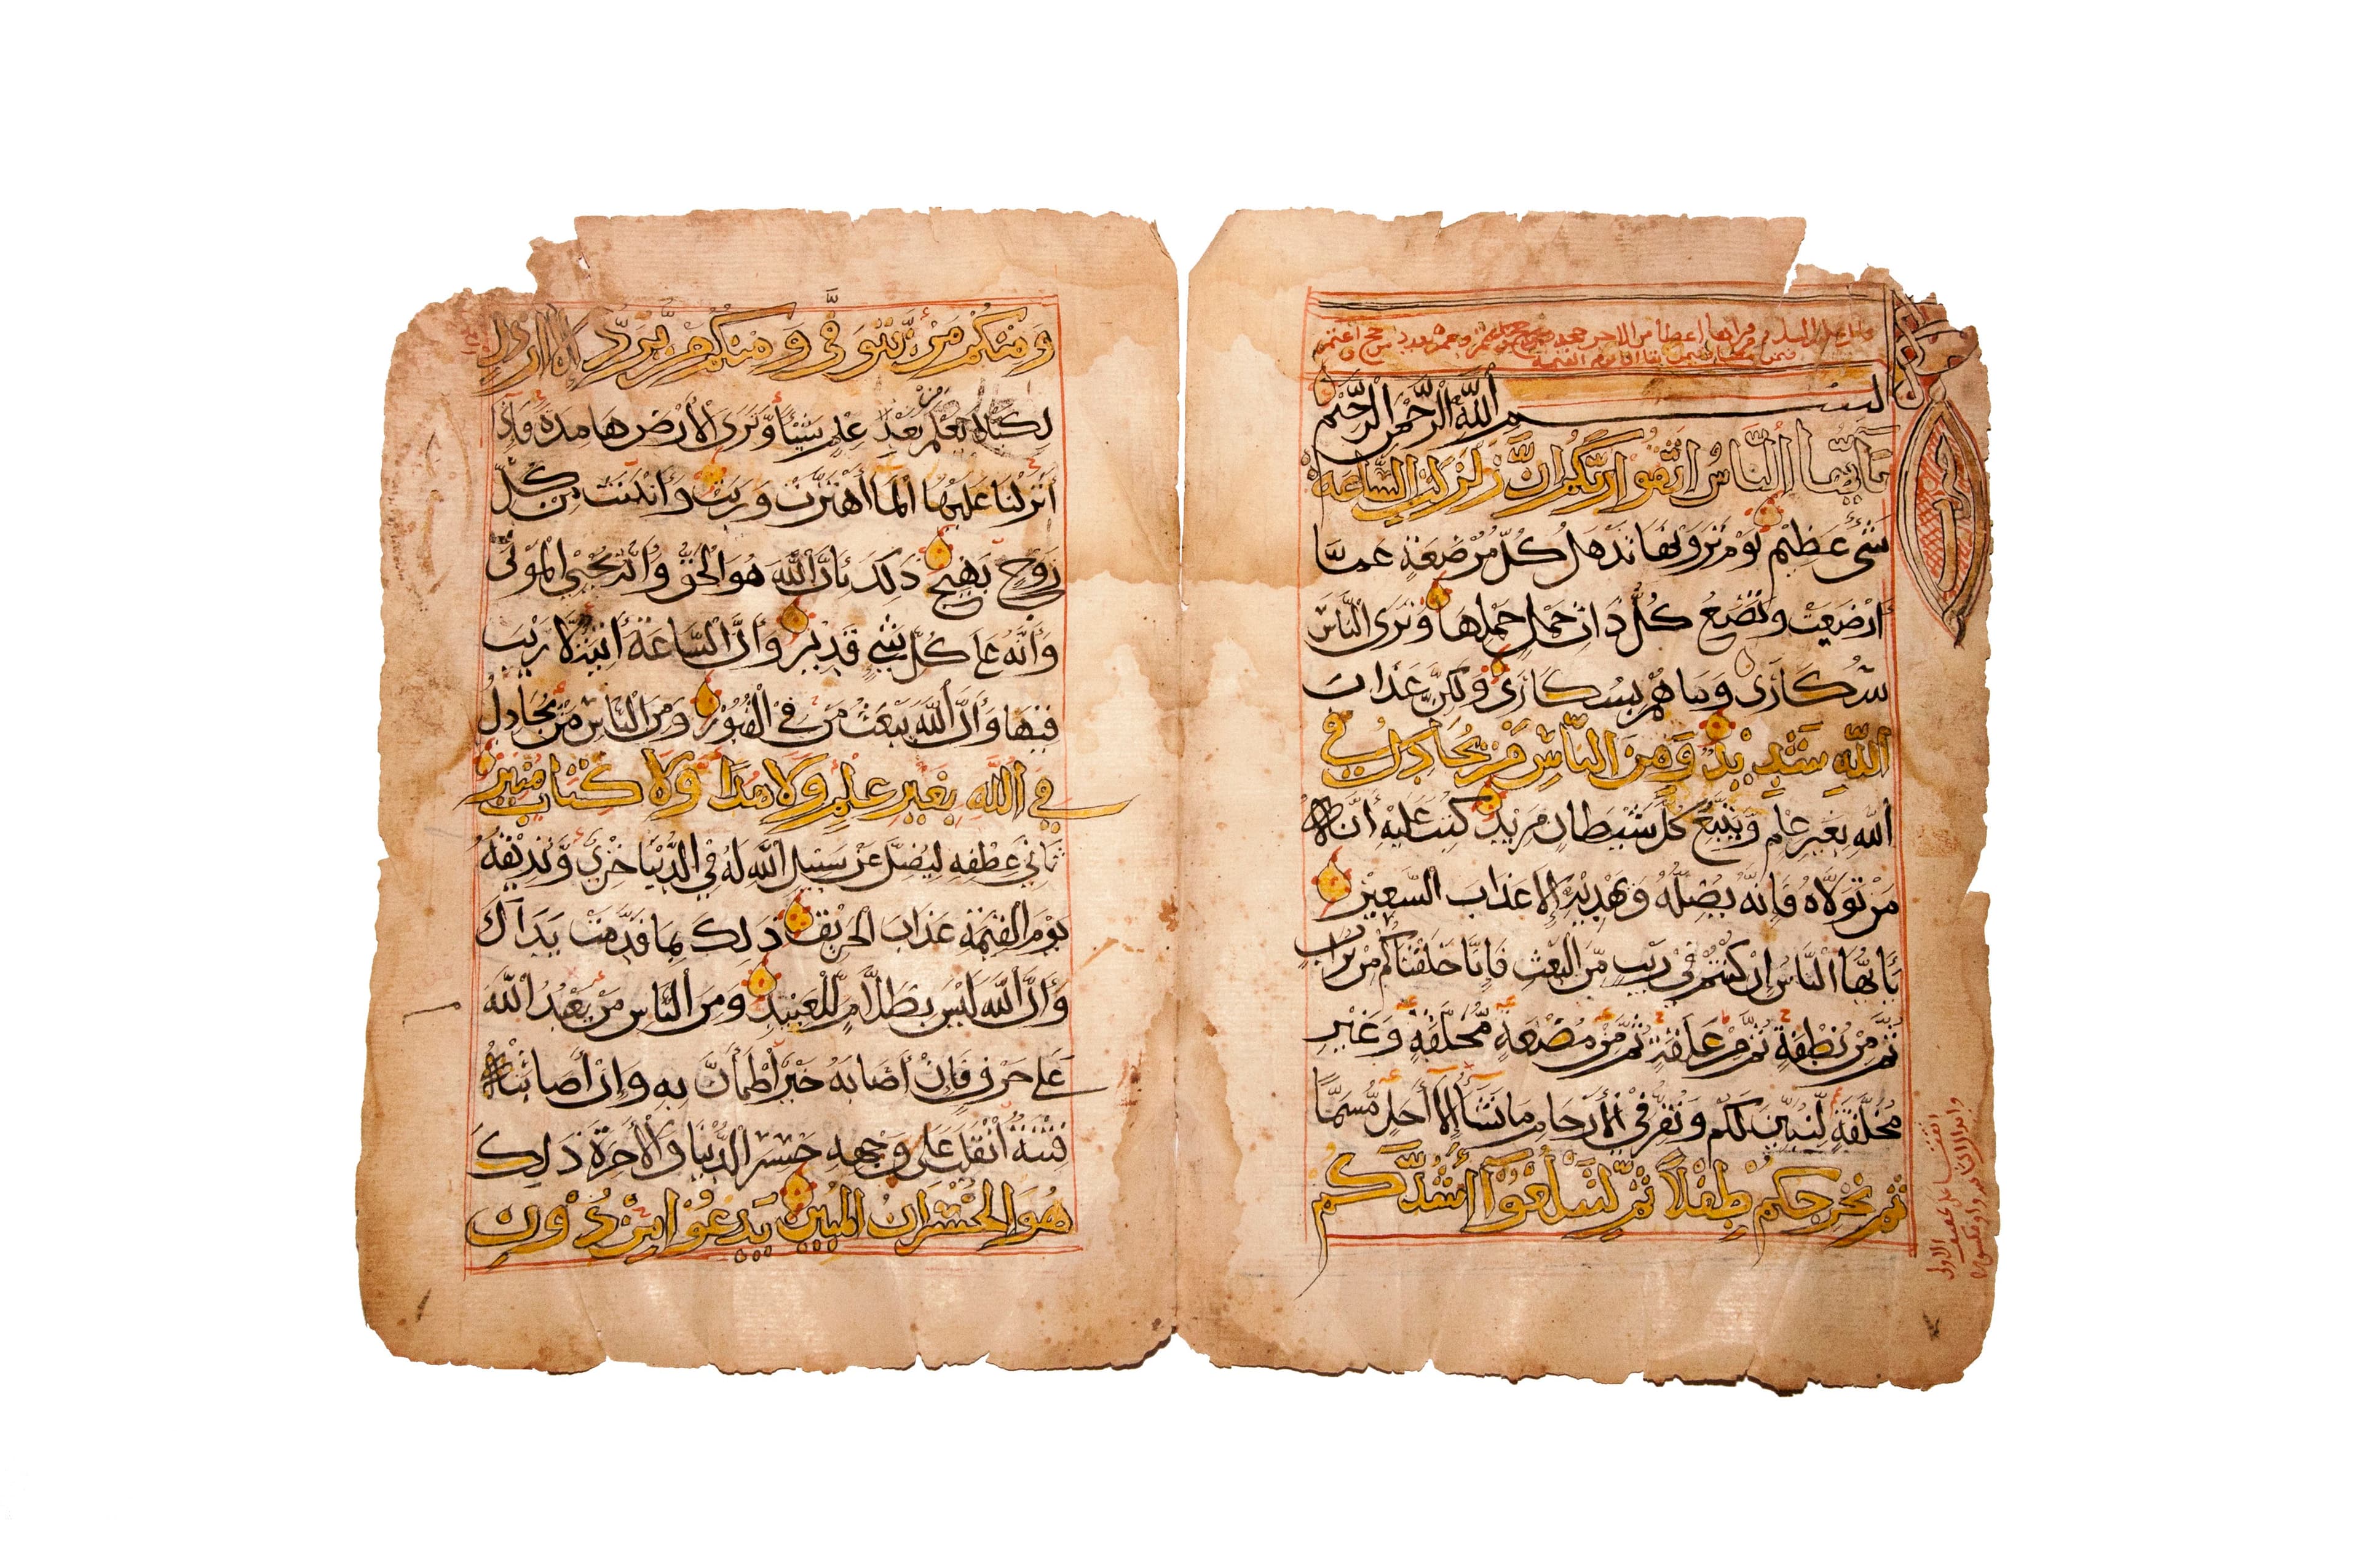 بسم الله الرحمن الرحيم
يَا أَيُّهَا النَّاسُ اتَّقُوا رَبَّكُمْ إِنَّ زَلْزَلَةَ السَّاعَةِ
شَيْءٌ عَظِيمٌ يَوْمَ تَرَوْنَهَا تَذْهَلُ كُلُّ مُرْضِعَةٍ عَمَّا
أَرْضَعَتْ وَتَضَعُ كُلُّ ذَاتِ حَمْلٍ حَمْلَهَا وَتَرَى النَّاسَ
سُكَارَى وَمَا هُمْ بِسُكَارَى وَلَكِنَّ عَذَابَ
اللَّهِ شَدِيدٌ وَمِنَ النَّاسِ مَنْ يُجَادِلُ فِي
اللَّهِ بِغَيْرِ عِلْمٍ وَيَتَّبِعُ كُلَّ شَيْطَانٍ مَرِيدٍ كُتِبَ عَلَيْهِ أَنَّهُ
مَنْ تَوَلَّاهُ فَأَنَّهُ يُضِلُّهُ وَيَهْدِيهِ إِلَى عَذَابِ السَّعِيرِ
يَا أَيُّهَا النَّاسُ إِنْ كُنْتُمْ فِي رَيْبٍ مِنَ الْبَعْثِ فَإِنَّا خَلَقْنَاكُمْ مِنْ تُرَابٍ
ثُمَّ مِنْ نُطْفَةٍ ثُمَّ مِنْ عَلَقَةٍ ثُمَّ مِنْ مُضْغَةٍ مُخَلَّقَةٍ وَغَيْرِ
مُخَلَّقَةٍ لِنُبَيِّنَ لَكُمْ وَنُقِرُّ فِي الْأَرْحَامِ مَا نَشَاءُ إِلَى أَجَلٍ مُسَمًّا
ثُمَّ نُخْرِجُكُمْ طِفْلًا ثُمَّ لِتَبْلُغُوا أَشُدَّكُمْ
وَمِنْكُمْ مَنْ يُتَوَفَّى وَمِنْكُمْ مَنْ يُرَدُّ إِلَى أَرْذَلِ
لِكَيْلَا يَعْلَمَ مِنْ بَعْدِ عِلْمٍ شَيْئًا وَتَرَى الْأَرْضَ هَامِدَةً فَإِذَا
أَنْزَلْنَا عَلَيْهَا الْمَاءَ اهْتَزَّتْ وَرَبَتْ وَأَنْبَتَتْ مِنْ كُلِّ
زَوْجٍ بَهِيجٍ ذَلِكَ بِأَنَّ اللَّهَ هُوَ الْحَقُّ وَأَنَّهُ يُحْيِي الْمَوْتَى
وَأَنَّهُ عَلَى كُلِّ شَيْءٍ قَدِيرٌ وَأَنَّ السَّاعَةَ آتِيَةٌ لَا رَيْبَ
فِيهَا وَأَنَّ اللَّهَ يَبْعَثُ مَنْ فِي الْقُبُورِ وَمِنَ النَّاسِ مَنْ يُجَادِلُ
فِي اللَّهِ بِغَيْرِ عِلْمٍ وَلَا هُدًا وَلَا كِتَابٍ مُنِيرٍ
ثَانِيَ عِطْفِهِ لِيُضِلَّ عَنْ سَبِيلِ اللَّهِ لَهُ فِي الدُّنْيَا خِزْيٌ وَنُذِيقُهُ
يَوْمَ الْقِيَمَةِ عَذَابَ الْحَرِيقِ ذَلِكَ بِمَا قَدَّمَتْ يَدَاكَ
وَأَنَّ اللَّهَ لَيْسَ بِظَلَّامٍ لِلْعَبِيدِ وَمِنَ النَّاسِ مَنْ يَعْبُدُ اللَّهَ
عَلَى حَرْفٍ فَإِنْ أَصَابَهُ خَيْرٌ اطْمَأَنَّ بِهِ وَإِنْ أَصَابَتْهُ
فِتْنَةٌ انْقَلَبَ عَلَى وَجْهِهِ خَسِرَ الدُّنْيَا وَالْآخِرَةَ ذَلِكَ
هُوَ الْخُسْرَانُ الْمُبِينُ يَدْعُوا مِنْ دُونِ